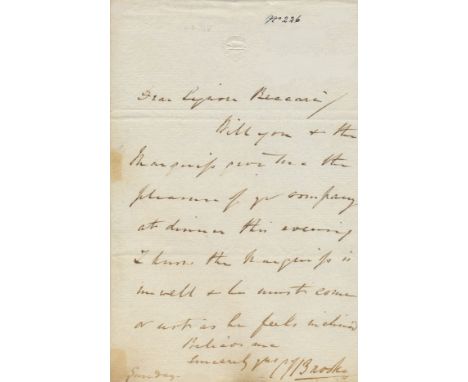 No 226
Dear Signor Beccari
Will you & the
Marquiss give me the
pleasure of yr company
at dinner this evening
I know the Marquiss is
unwell & he must come
or not as he feels inclined
Believe me
Sincerely yrs CJBrooke
Sunday.